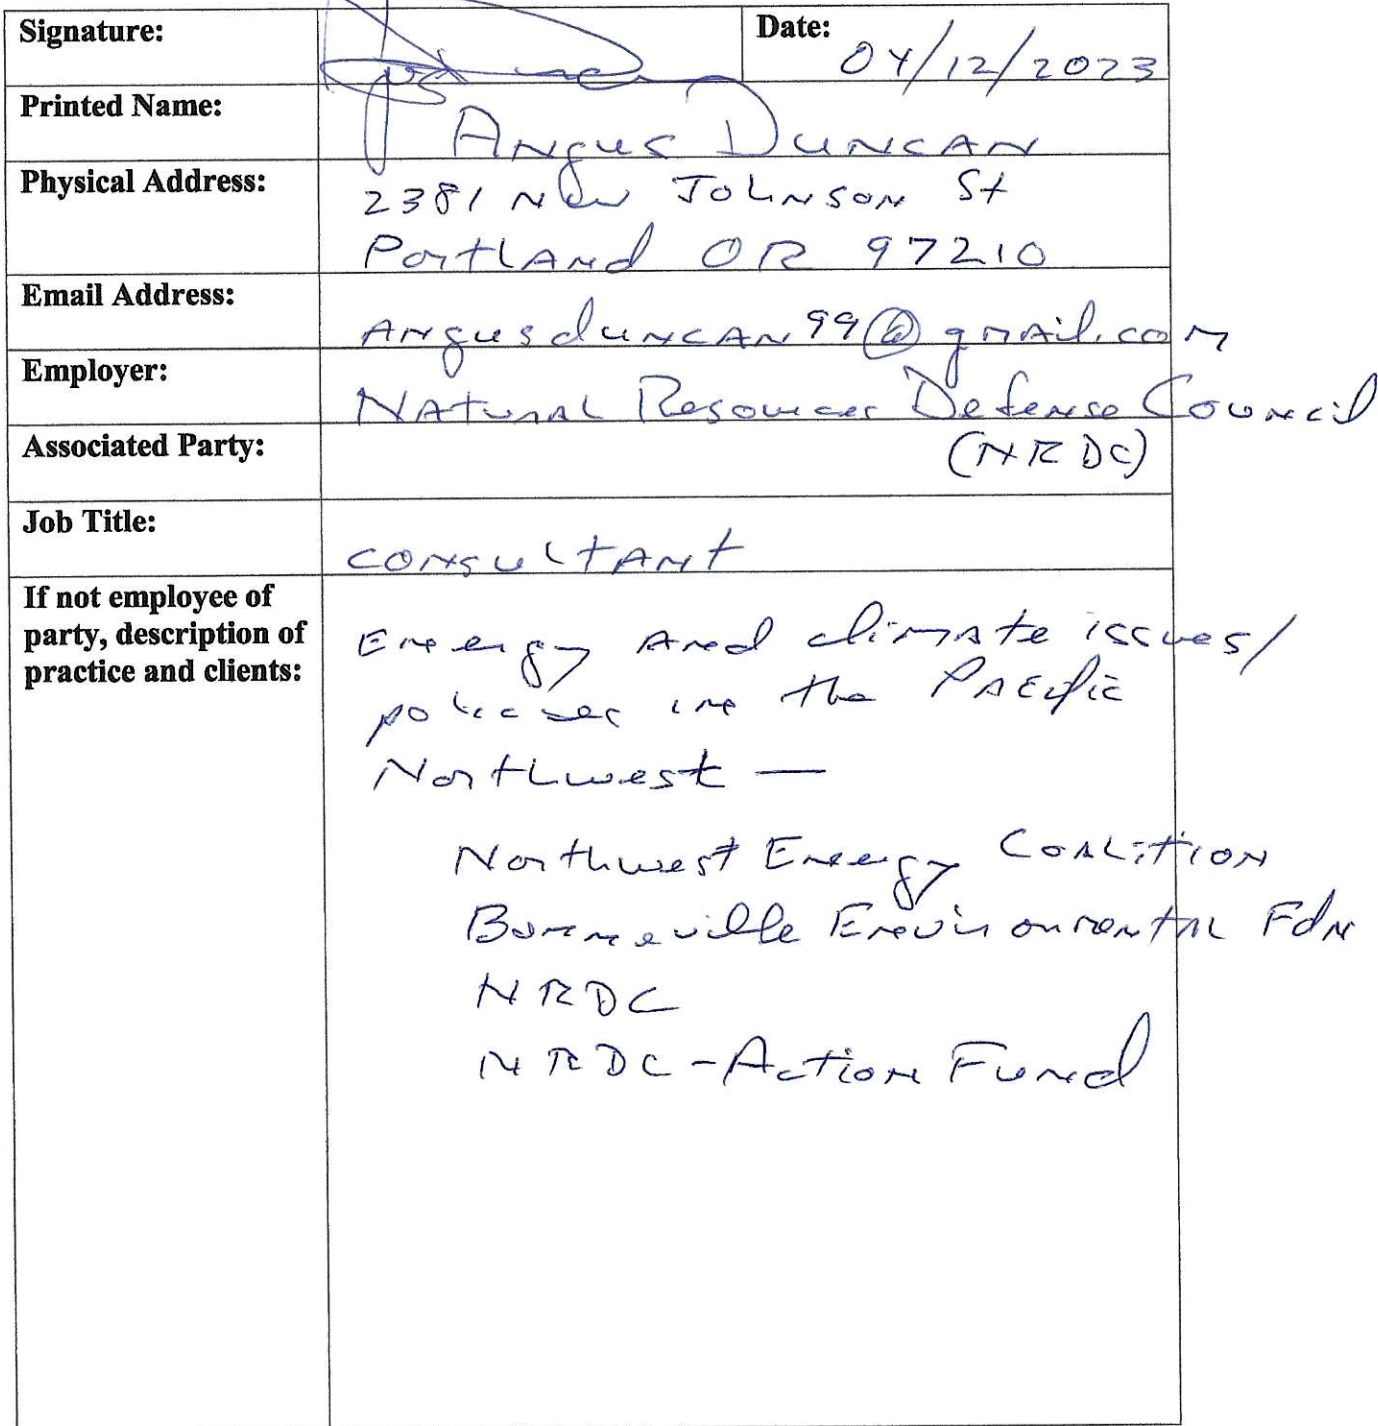 Signature:
Date: 04/12/2023
Printed Name: Angus Duncan
Physical Address: 2381 NW Johnson St
Portland OR 97210
Email Address: angusduncan99@gmail.com
Employer: Natural Resources Defense Council
Associated Party: (NRDC)
Job Title: Consultant
If not employee of
party, description of
practice and clients:
Energy and climate issues/
policies in the Pacific
Northwest —
Northwest Energy Coalition
Bonneville Environmental Fdn
NRDC
NRDC - Action Fund